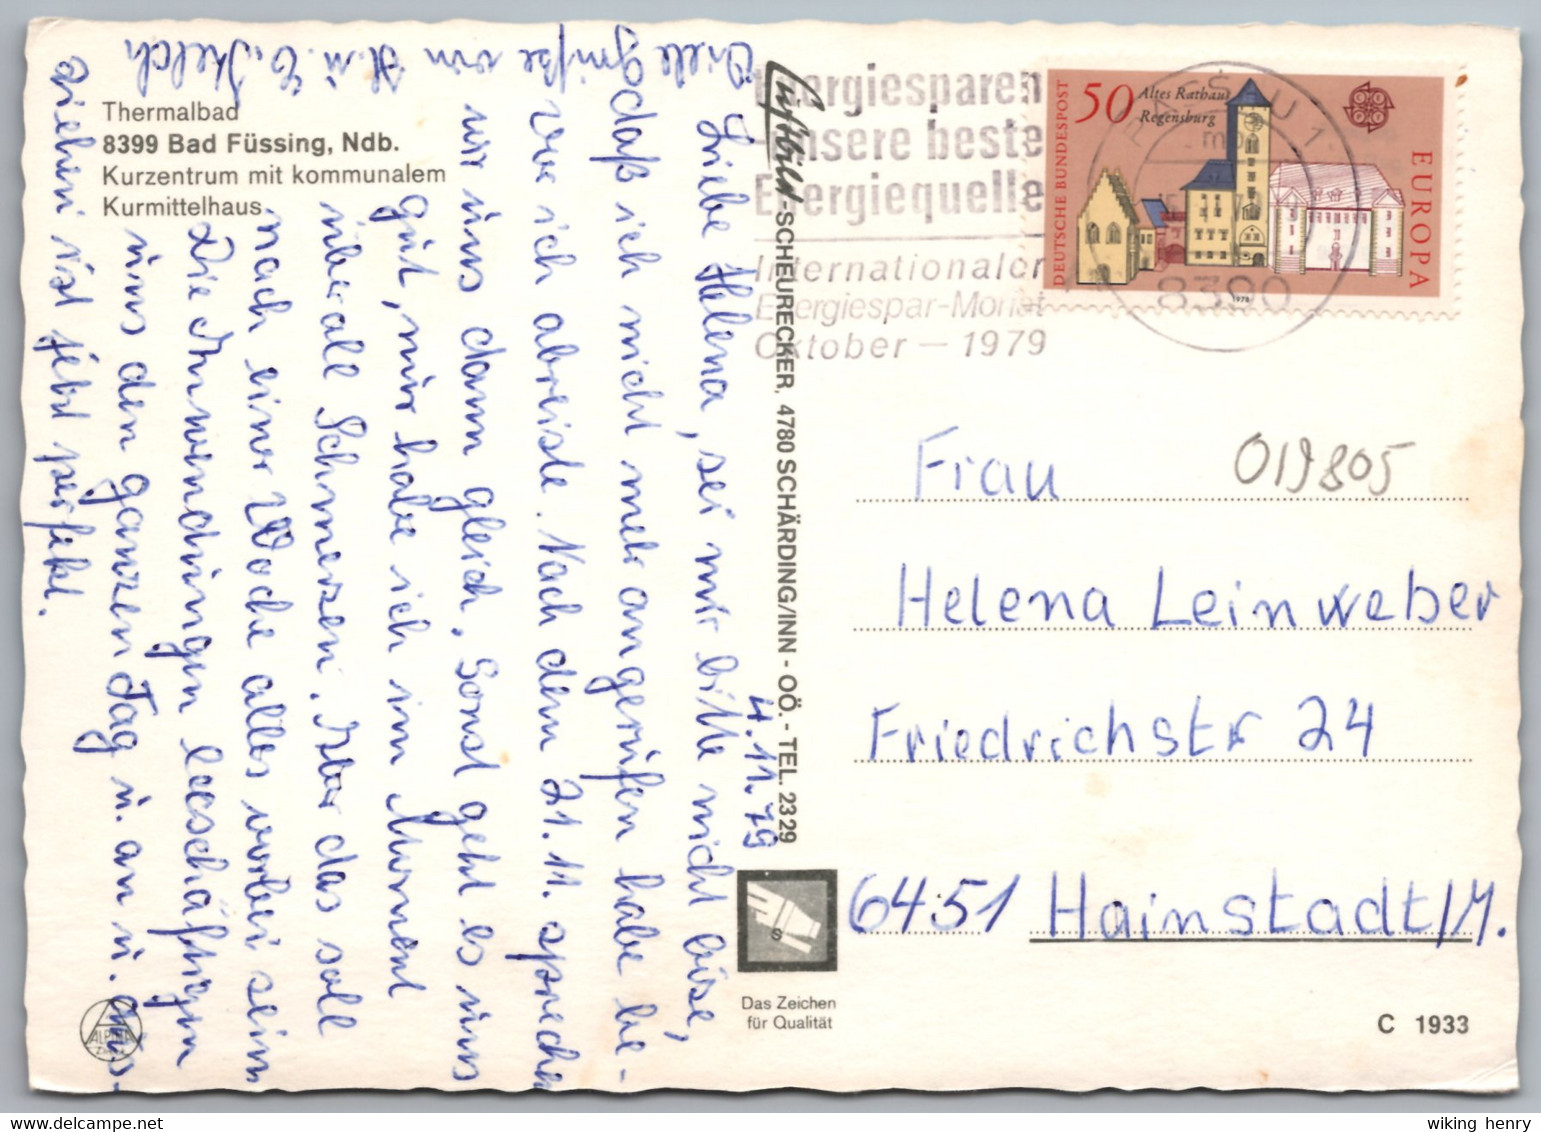 Thermalbad
8399 Bad Füssing, Ndb.
Kurzentrum mit kommunalem
Kurmittelhaus
4.11.79
Liebe Helena, sei mir bitte nicht böse,
daß ich mich nicht mehr angerufen habe be-
vor ich abreiste. Nach dem 21.11. sprechen
wir uns dann gleich. Sonst geht es uns
gut, nur habe ich im Moment
überall Schmerzen. Aber das soll
nach einer Woche alles vorbei sein
Die Anwendungen beschäftigen
uns den ganzen Tag u. an u. aus-
ziehen ist jetzt perfekt.
Viele Grüße von H. u. E.
Luftbild SCHEURECKER, 4780 SCHÄRDING/INN - OÖ. - TEL. 2329
Das Zeichen
für Qualität
ALPINA
S
Energiesparen
unsere beste
Energiequelle
Internationaler
Energiespar-Monat
Oktober — 1979
PASSAU 1
8390
50 Altes Rathaus
Regensburg
DEUTSCHE BUNDESPOST
EUROPA
1978
Frau
019805
Helena Leinweber
Friedrichstr 24
6451 Hainstadt/M.
C 1933
wiking henry